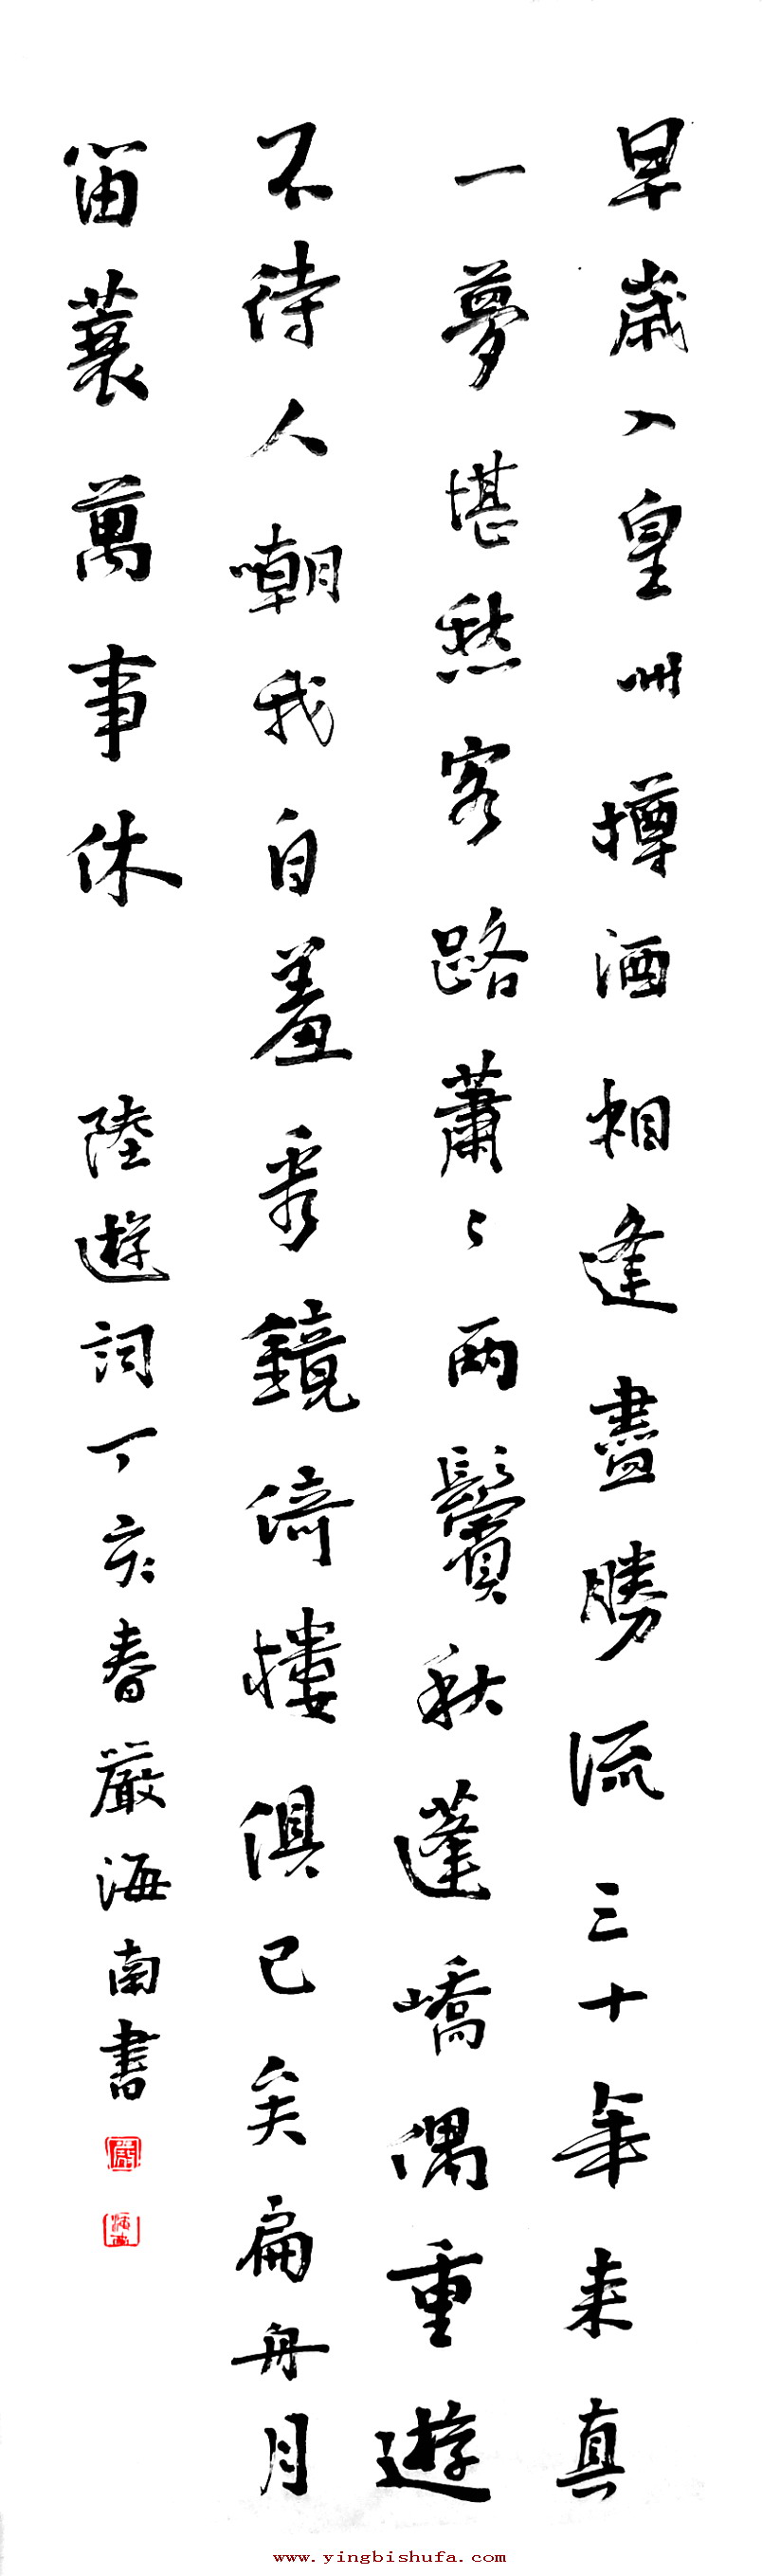 早歲入皇州樽酒相逢盡勝流三十年来真
一夢堪愁客路蕭々兩鬢秋蓬嶠偶重遊
不待人嘲我自羞看鏡倚樓俱已矣扁舟月
笛蓑萬事休 陸遊詞丁亥春嚴海南書
www.yingbishufa.com